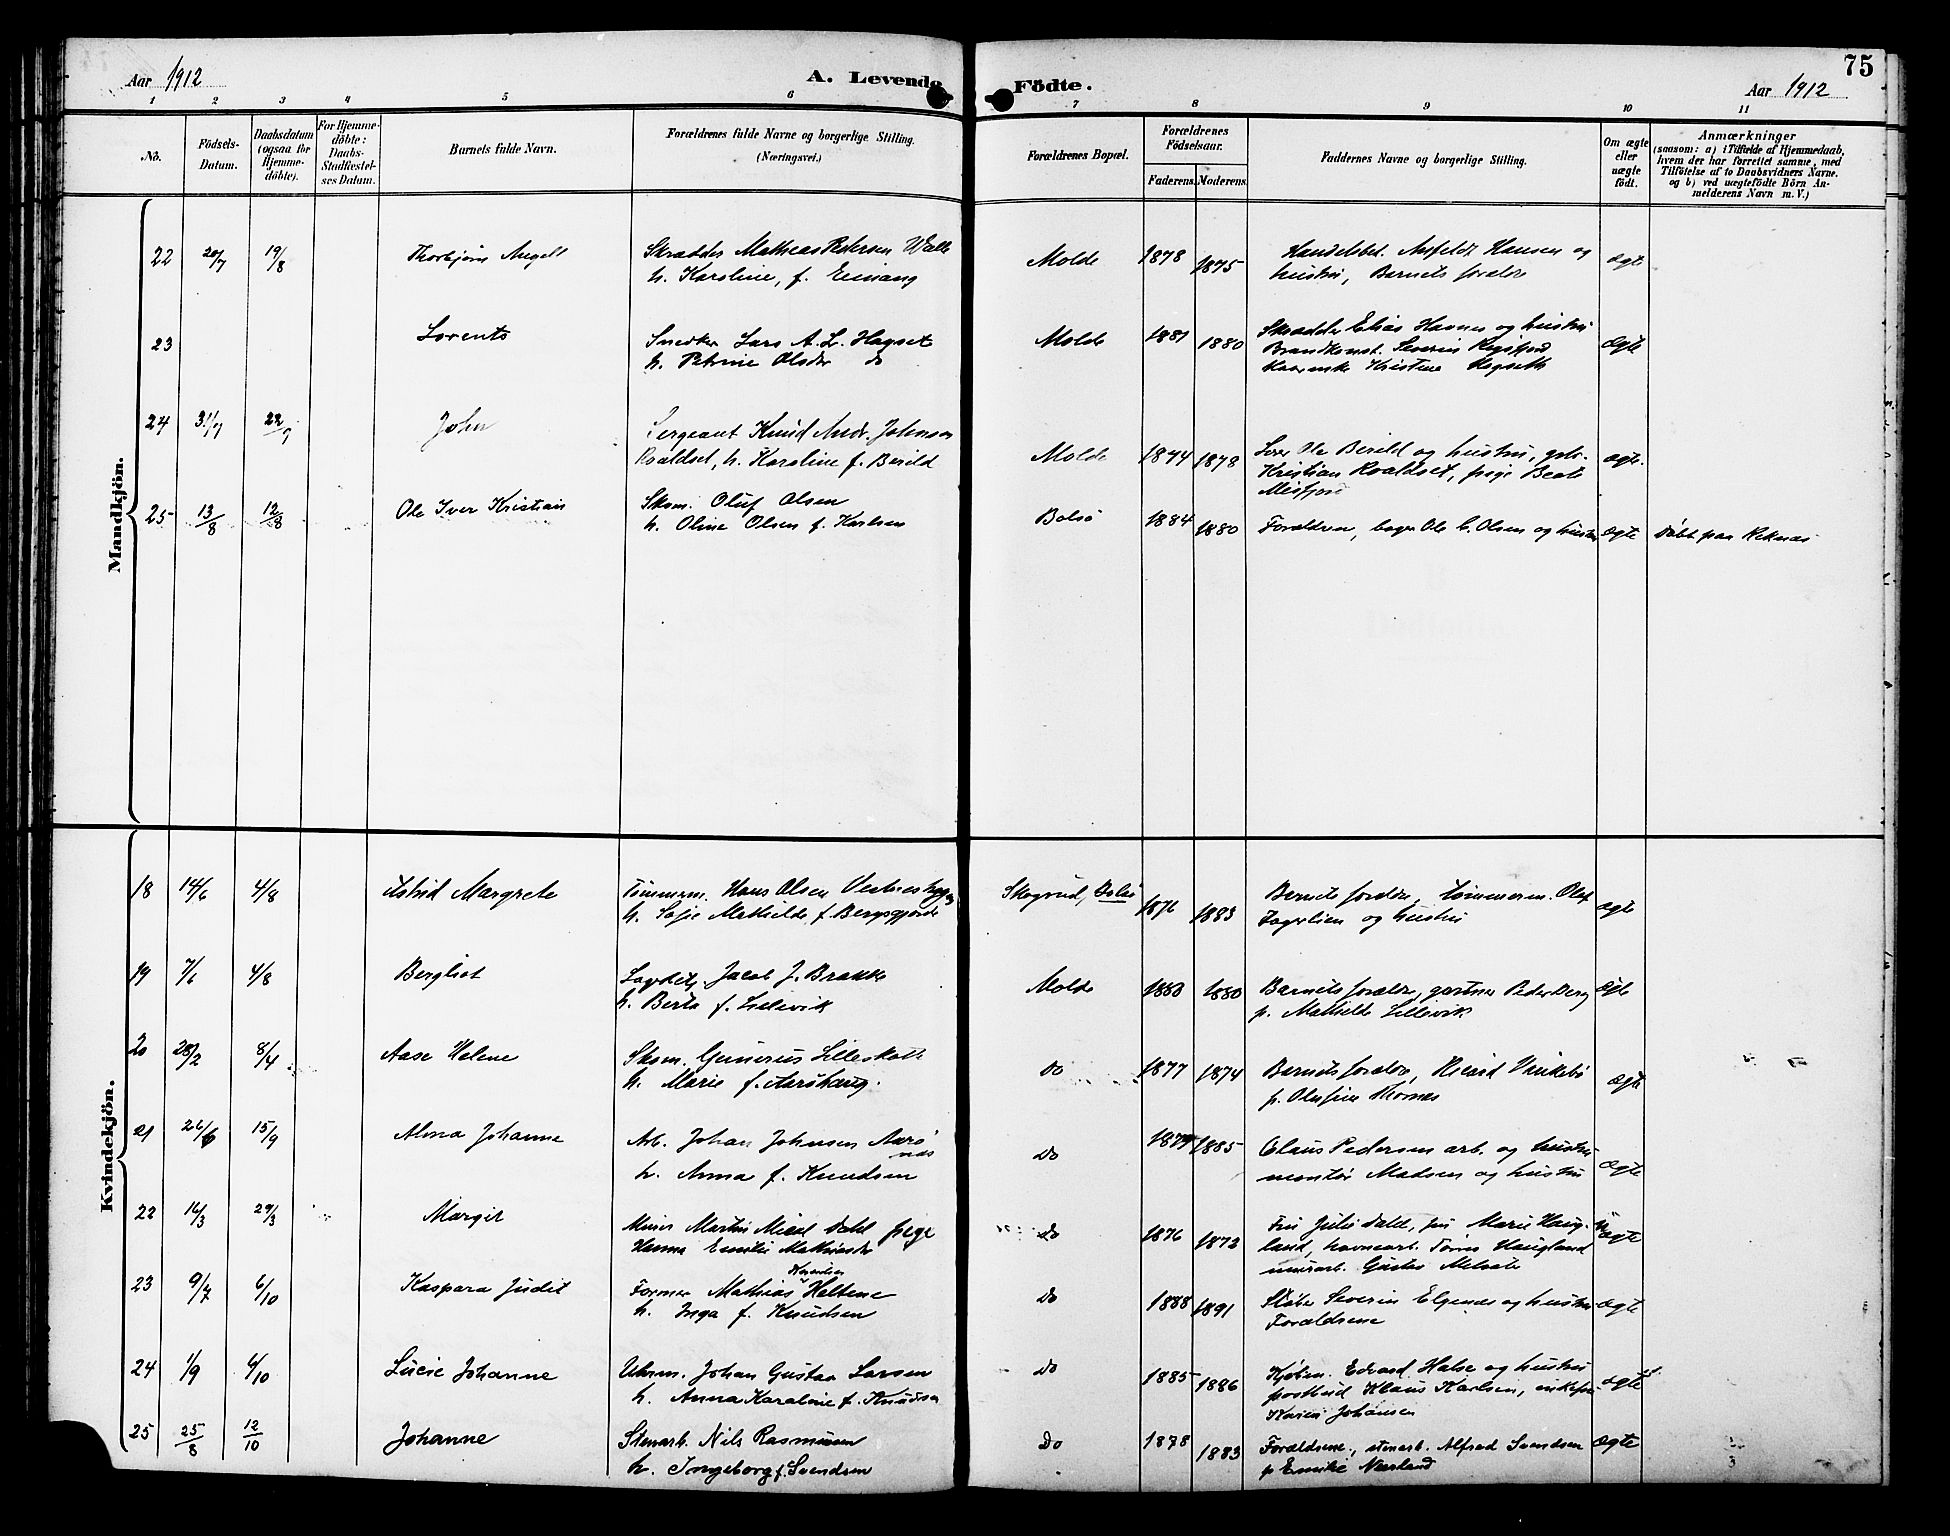 Aar 1912
A. Levende
Födte.
Aar 1912
75
1 2 3 4 5 6 7 8 9 10 11
No.
Födsels-
Datum.
Daabsdatum
(ogsaa for
Hjemme-
döbte).
For Hjemme-
döbte:
Daabs-
Stadfæstel-
ses Datum.
Barnets fulde Navn.
Forældrenes fulde Navne og borgerlige Stilling.
(Næringsvei.)
Forældrenes Bopæl.
Forældrenes
Födselsaar.
Faderens. Moderens.
Faddernes Navne og borgerlige Stilling.
Om ægte
eller
uægte
födt.
Anmærkninger
(saasom: a) i Tilfælde af Hjemmedaab,
hvem der har forrettet samme, med
Tilföielse af to Daabsvidners Navne.
og b) ved uægtefödte Börn An-
melderens Navn m. V.)
Mandkjön.
22 20/7 19/8 Thorbjörn Angell Skrædder Mathias Petersen Walle
h. Karoline, f. Molde 1878 1875 Handelsbet. Hansen og
hustru, Barnets forældre ægte
23 Lorents Snedker Lars A. L. Hagset
h. Petrine Olsdtr do Molde 1881 1880 Skrædder Elias Havnes og hustru
Brandkonst. Severin
Kristine Hagseth ægte
24 31/7 22/9 John Sergeant Knud Andr. Johnsen
Roaldset, h. Karoline f. Berild Molde 1874 1878 Ole Berild og hustru,
Kristian Roaldset, pige Beate
Misfjord ægte.
25 13/8 12/8 Ole Iver Kristian Skom. Oluf Olsen
h. Oline Olsen f. Karlsen Bolsö 1884 1880 Forældrene, bager Ole C. Olsen og hustru ægte Döbt paa Reknæs
Kvindekjön.
18 14/6 4/8 Astrid Margrete Tömmerm. Hans Olsen
h. Mathilde f. Skogrud, Bolsö 1876 1883 Barnets forældre, tömmerm. Olaf
Fagerlien og hustru ægte
19 7/6 4/8 Bergliot Jacob J. Brakke
h. Berta f. Lillevik Molde 1883 1880 Barnets forældre, gartner Peder Berg
p. Mathilde Lillevik ægte
20 28/2 8/4 Aase Helene Skom. Gunerus Lilleskott
h. Marie f. Aarshaug. do 1877 1874 Barnets forældre, Rikard
p. Olufine Thornes ægte
21 26/6 15/9 Alma Johanne Arb. Johan Johnsen Aarö
næs
h. Anna f. Knudsen do 1885 Claus Pedersen arb. og hustru
montör Madsen og hustru ægte
22 16/3 29/3 Margit Murer Martin Dahl pige
Hanna Emilie do 1876 1873 Fru Julie Dahl, fru Marie Haug-
land, havnearb. Haugland
murarb. Gustav uægte
23 9/7 6/10 Kaspara Judit Former Mathias Heltene
h. Inga f. Knudsen do 1888 1891 Stöber Severin Elgenæs og hustru
Forældrene ægte
24 1/9 6/10 Lucie Johanne Uhrm. Johan Gustav Larsen
h. Anna Karoline f. Knudsen do 1885 1886 Kjöbm. Edvard Halse og hustru
postbud Klaus Karlsen, enkefru
Karen Johansen ægte
25 25/8 12/10 Johanne Stenarb. Nils Rasmussen
h. Ingeborg f. Svendsen do 1878 1883 Forældrene, stenarb. Alfred Svendsen
p Emilie Nærland ægte